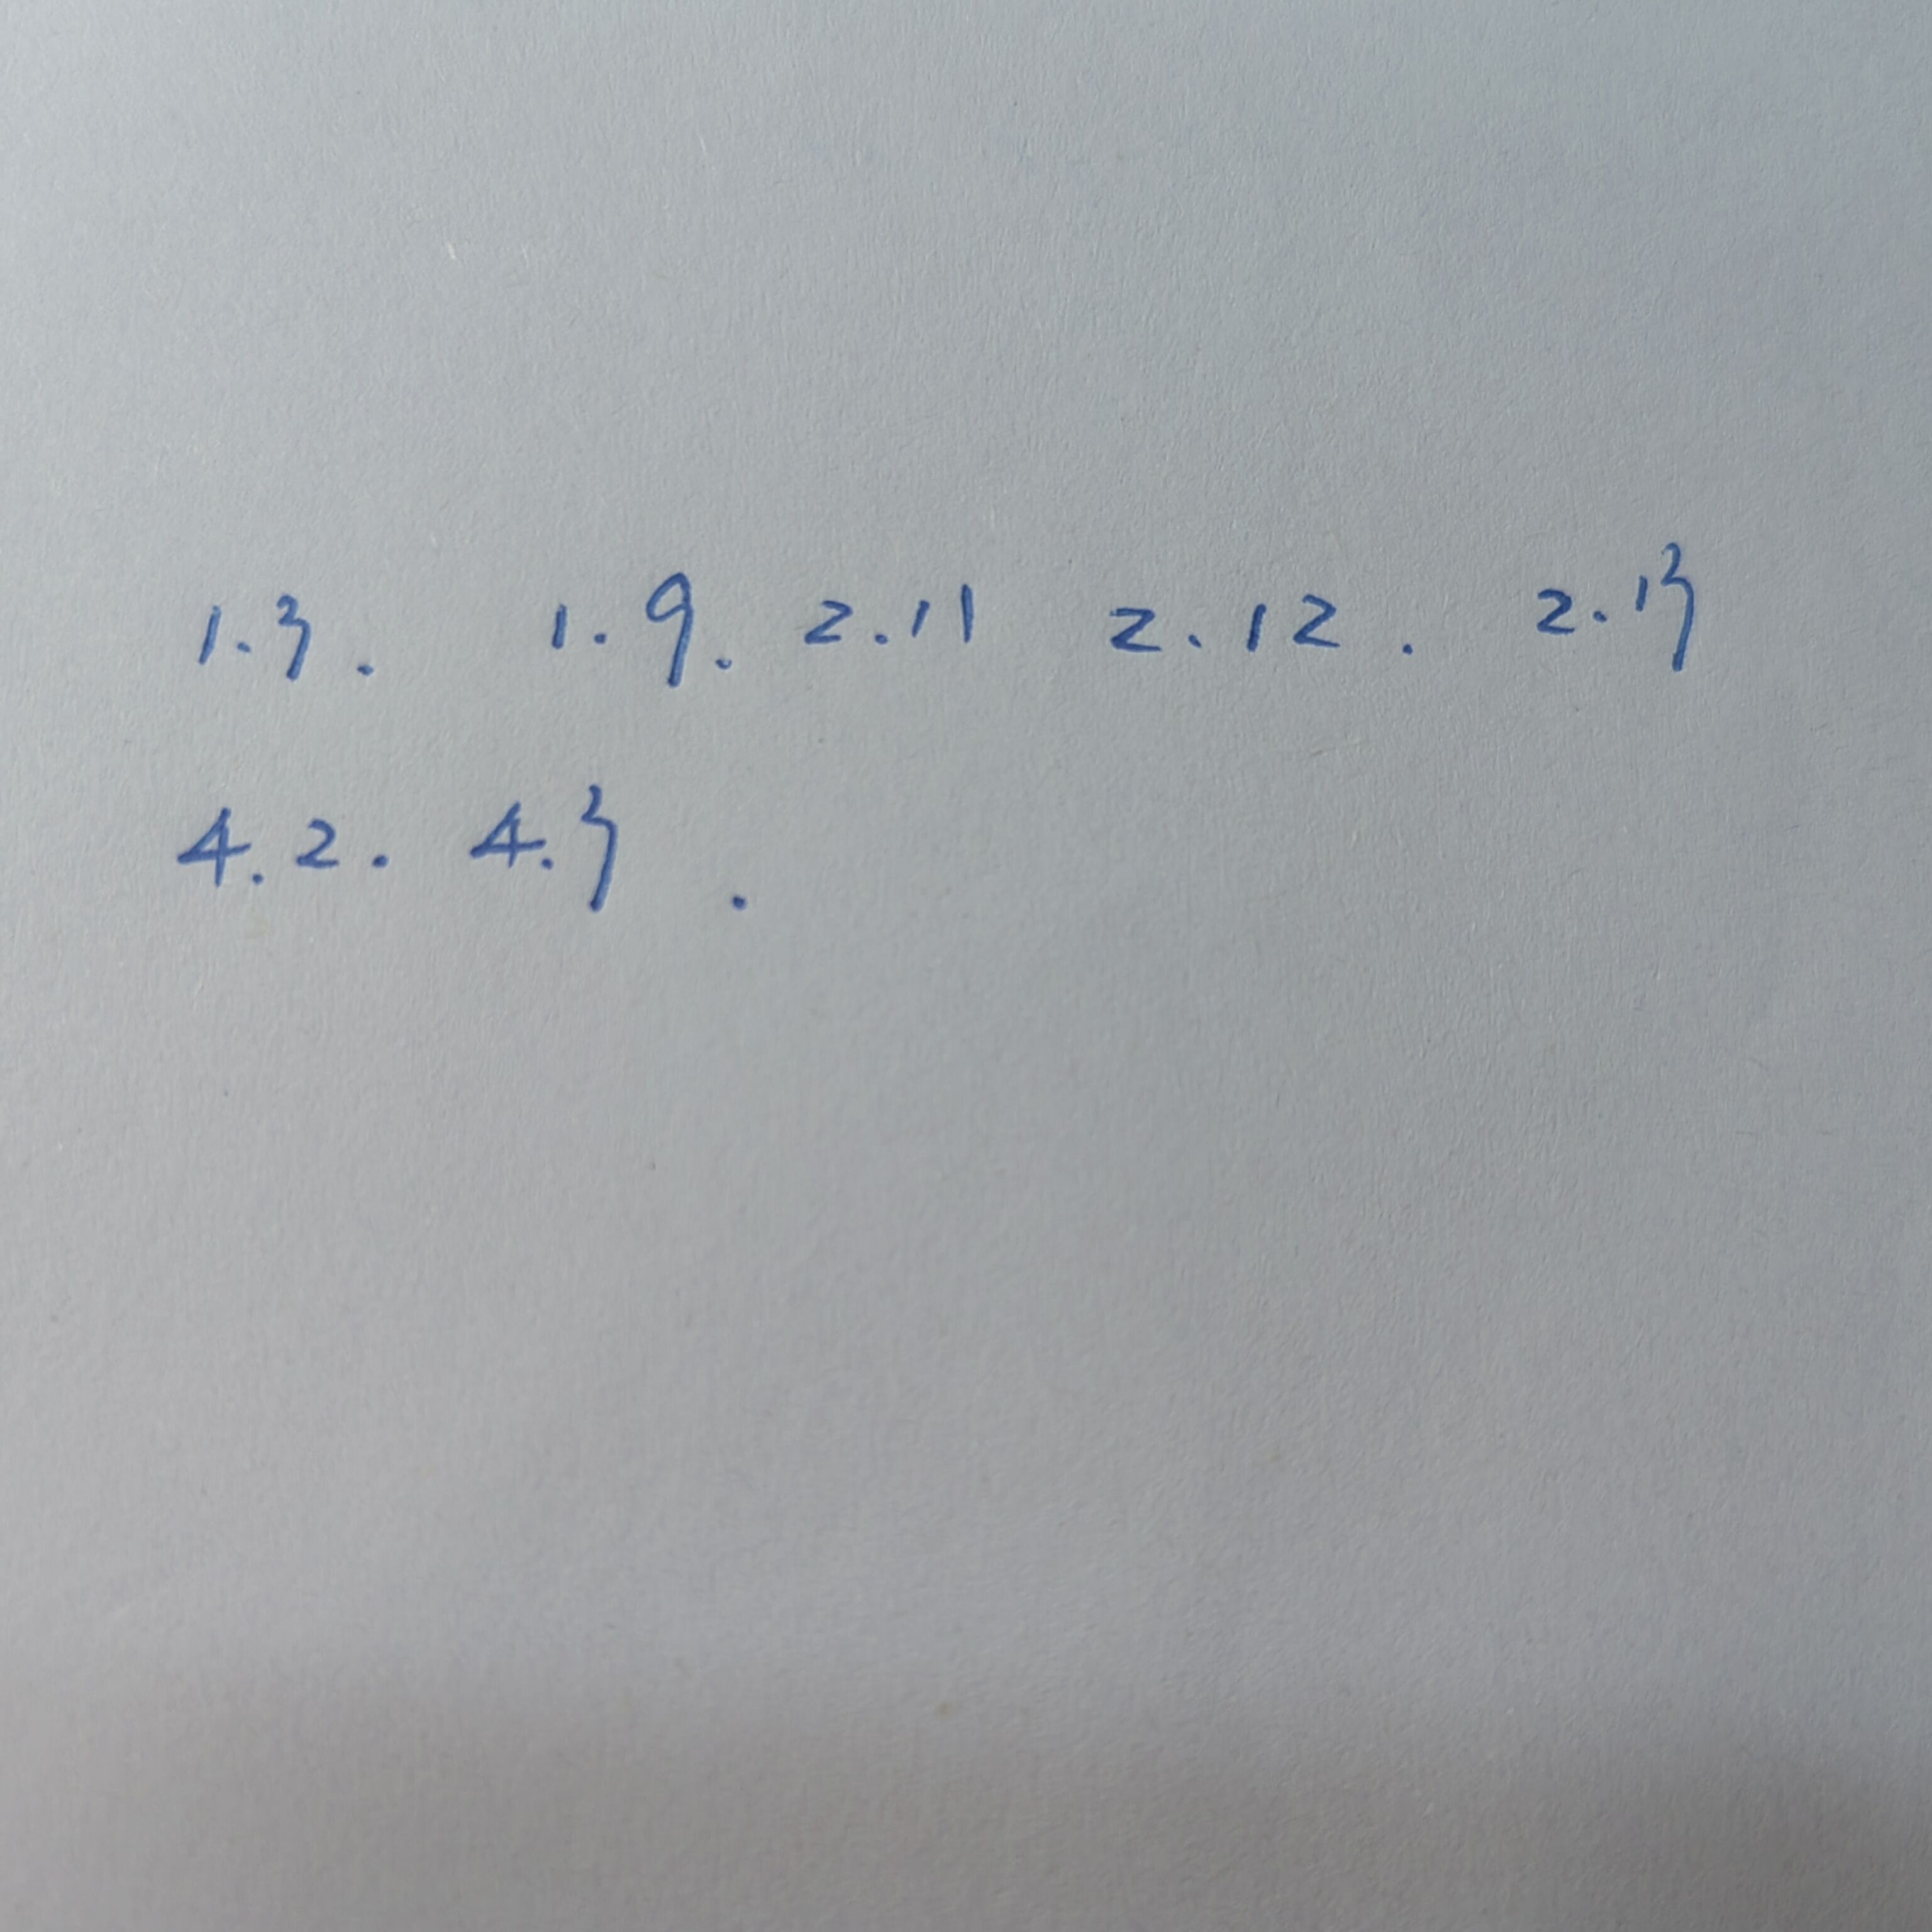 1.3. 1.9. 2.11 2.12. 2.13
4.2. 4.3.